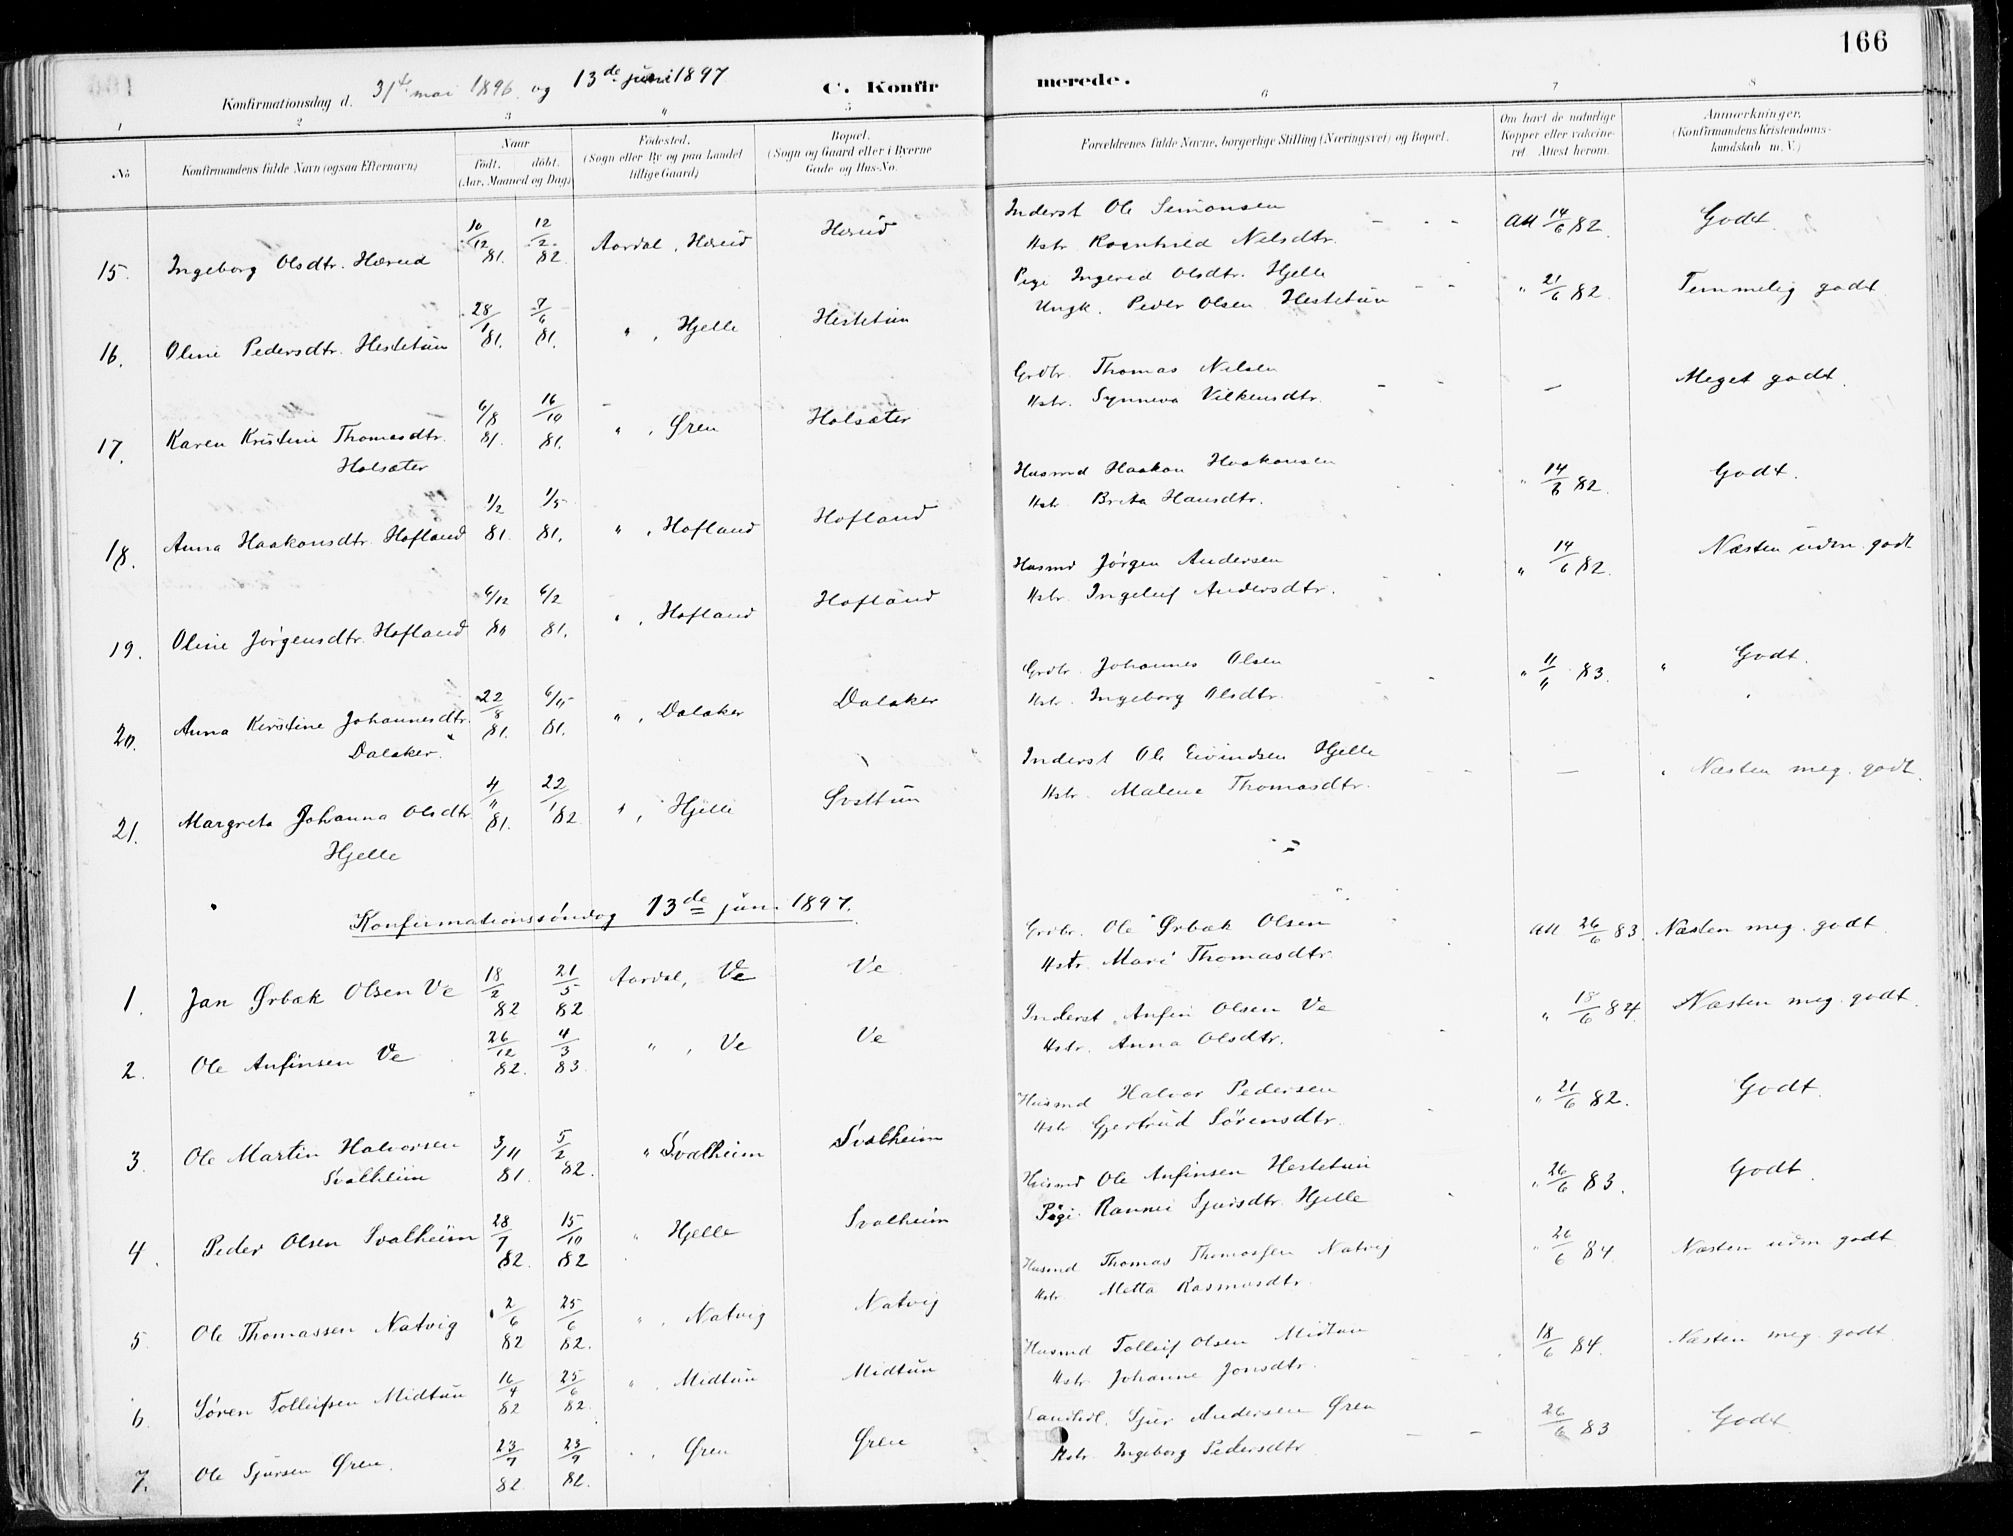 166
Konfirmationsdag d. 31te mai 1896 og 13de juni 1897
C. Konfirmerede.
1 2 3 4 5 6 7 8
No
Konfirmandens fulde Navn (ogsaa Efternavn)
Naar
født. døbt.
(Aar, Maaned og Dag)
Fødested.
(Sogn eller By og paa Landet
tillige Gaard)
Bopæl.
(Sogn og Gaard eller i Byerne
Gade og Hus-No.
Forældrenes fulde Navne, borgerlige Stilling (Næringsvei) og Bopæl.
Om havt de naturlige
Kopper eller vakcine-
ret. Attest herom.
Anmærkninger.
(Konfirmandens Kristendoms-
kundskab m. V.)
15. Ingeborg Olsdtr. Hæreid 10/12 81. 12/2 82 Aardal, Hereid Hereid
Inderst Ole Simonsen
Hstr. Ragnhild Nelsdtr. Att 14/6 82. Godt.
16. Oline Pedersdtr. Hestetun 28/1 81. 7/6 81. " , Hjelle Hestetun
Pige Ingerid Olsdtr. Hjelle
Ungk. Peder Olsen Hestetun " 21/6 82. Temmelig godt
17. Karen Kristine Thomasdtr. 6/8 81. 16/10 81. " , Øren Holsæter
Holsæter
Grdbr. Thomas Nilsen
Hstr. Synneva Vilkensdtr. — Meget godt.
18. Anna Haakonsdtr. Hofland 1/2 81. 1/5 81. " , Hofland Hofland
Husmd Haakon Haakonsen
Hstr Brita Hansdtr. " 14/6 82. Godt.
19. Oline Jørgensdtr. Hofland 6/12 80 6/2 81. " , Hofland Hofland
Husmd Jørgen Andersen
Hstr. Ingeleif Andersdtr. " 14/6 82. Næsten udm. godt
20. Anna Kirstine Johannesdtr. 22/8 81. 6/11 81. " , Dalaker Dalaker
Dalaker.
Grdbr. Johannes Olsen
Hstr. Ingeborg Olsdtr. " 11/11 83. " Godt.
21. Margreta Johanna Olsdtr 4/11 81. 22/1 82 " , Hjelle
Hjelle
Inderst Ole Eivindsen Hjelle
Hstr. Malene Thomasdtr. — Næsten meg. godt.
Konfirmationssøndag 13de juni 1897.
1. Jan Ørbæk Olsen Ve 18/2 82 21/5 82 Aardal, Ve Ve
Grdbr. Ole Ørbæk Olsen
Hstr. Mari Thomasdtr. Att 26/6 83. Næsten meg. godt
2. Ole Anfinsen Ve 26/12 82. 4/3 83. " , Ve Ve
Inderst Anfin Olsen Ve
Hstr. Anna Olsdtr. " 18/6 84. Næsten meg. godt
3. Ole Martin Halvorsen 3/11 81. 5/2 82. " Svalheim Svalheim
Svalheim
Husmd Halvor Pedersen
Hstr. Gjertrud Sørensdtr. " 21/6 82. Godt
4. Peder Olsen Svalheim 28/7 82. 15/10 82 " Hjelle Svalheim
Husmd Ole Anfinsen Hestetun
Pige Rannei Sjursdtr. Hjelle " 26/6 83. Godt.
5 Ole Thomassen Natvig 2/6 82 25/6 82. " , Natvig Natvig
Husmd Thomas Thomassen Natvig
Hstr. Metta Rasmusdtr. " 26/6 84. Næsten udm. godt
6 Søren Tolleifsen Midtun 16/4 82 25/6 82. " , Midtun Midtun
Husmd Tolleif Olsen Midtun
Hstr. Johanne Jonsdtr. 18/6 84. Næsten meg. godt
7. Ole Sjursen Øren. 23/7 82. 23/7 82. " , Øren Øren
Landhdl. Sjur Andersen Øren
Hstr. Ingeborg Pedersdtr 26/6 83 Godt